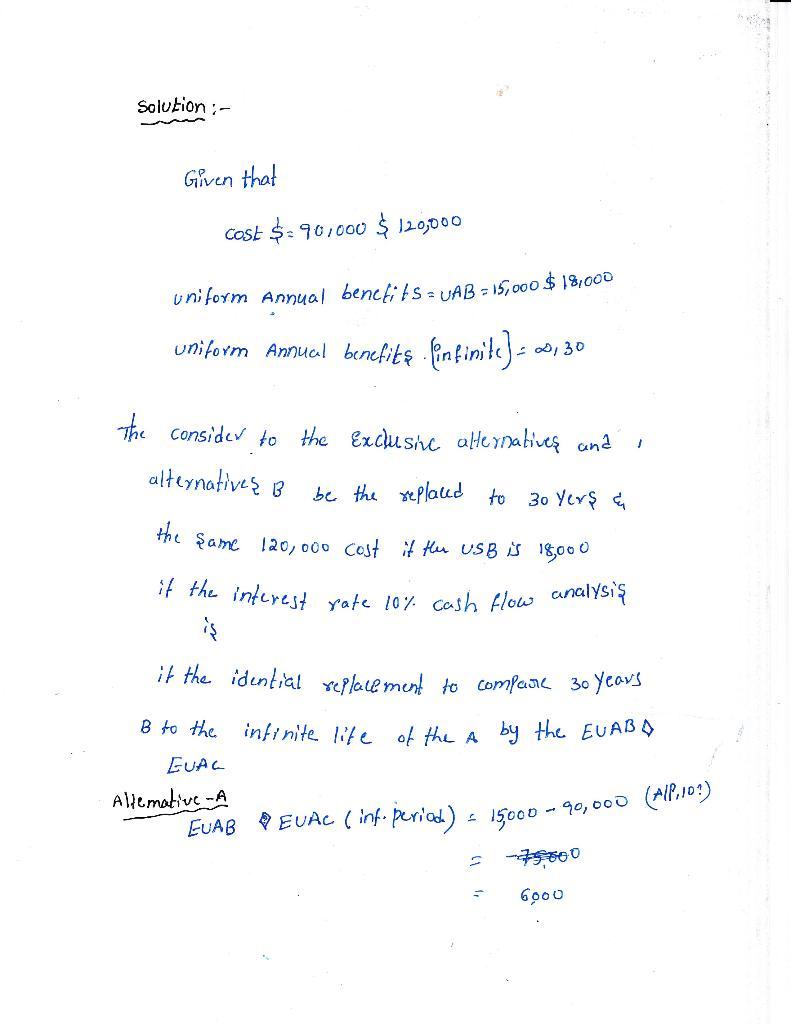 Solution :-
Given that
cost $ = 90,000 $ 120,000
uniform Annual benefits = UAB = 15,000 $ 18,000
uniform Annual benefits (infinite) = ∞, 30
The consider to the Exclusive alternatives and ,
alternatives B be the replaced to 30 Yers &
the same 120,000 cost if the USB is 18,000
if the interest rate 10% cash flow analysis
is
if the idential replacement to compare 30 years
B to the infinite life of the A by the EUAB
EUAC
Alternative-A
EUAB EUAC (inf. period) = 15000 - 90,000 (A/P,10?)
=
= 6000